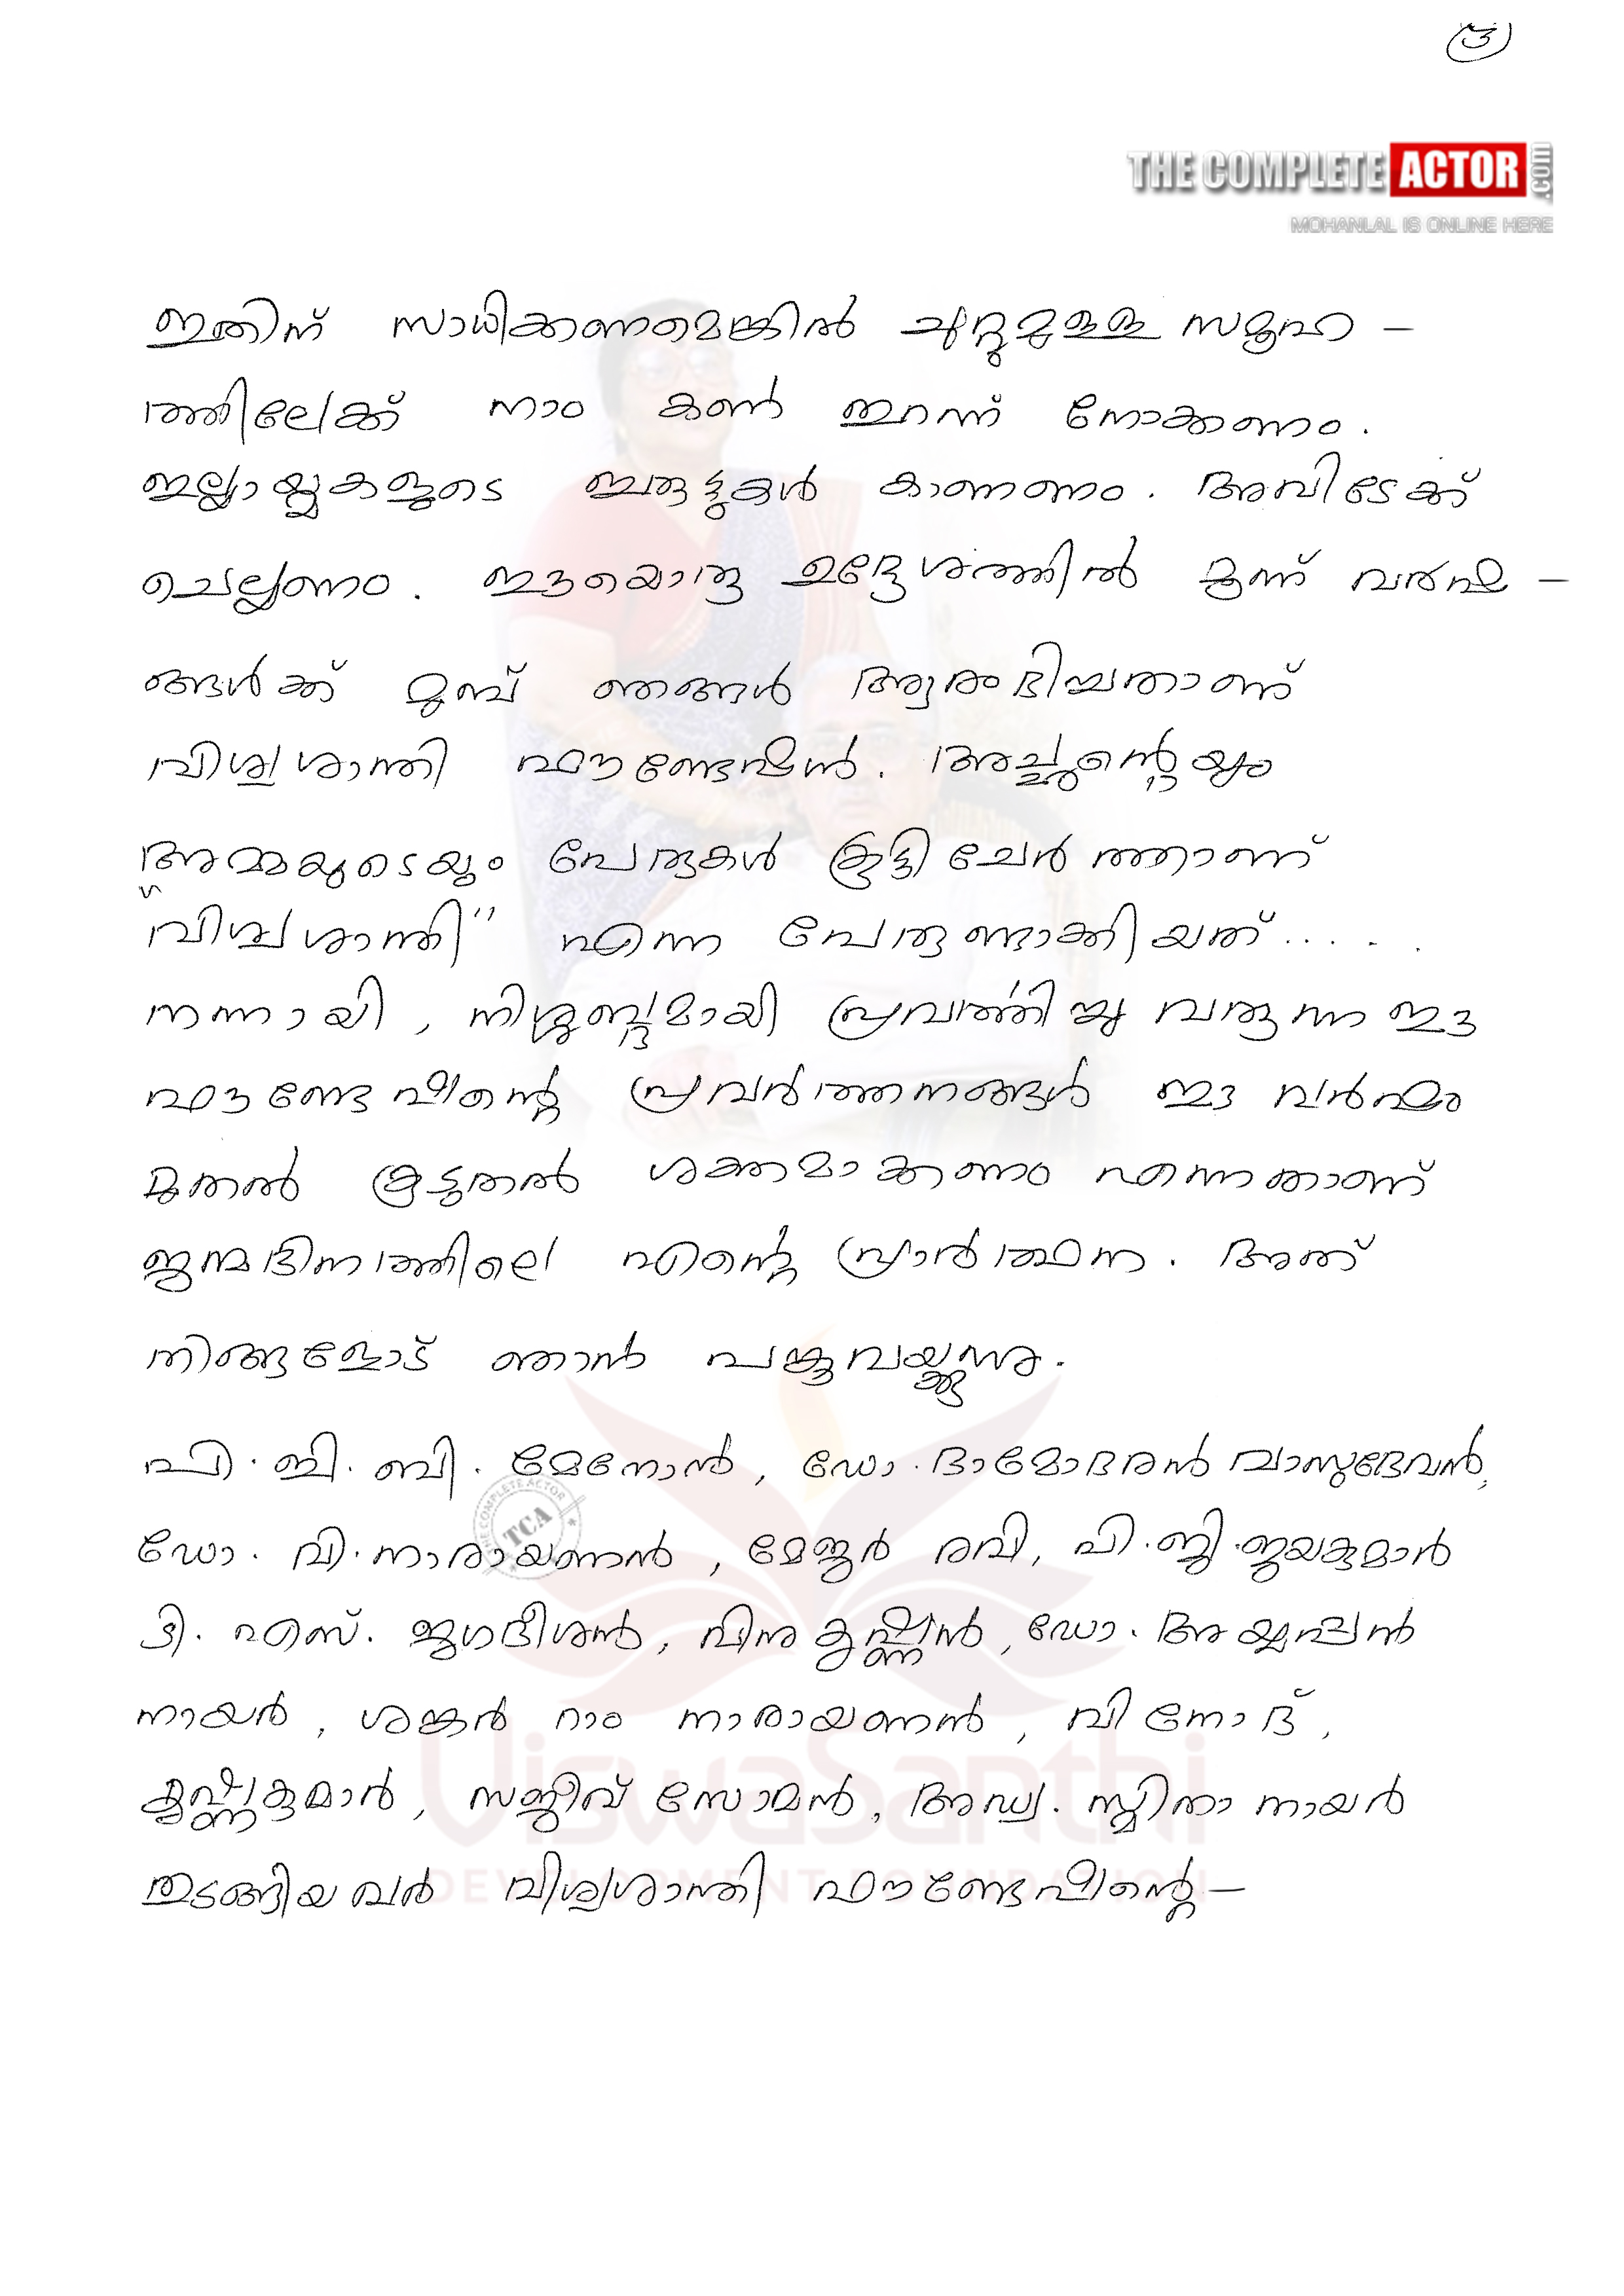 3
THE COMPLETE ACTOR .com
MOHANLAL IS ONLINE HERE
ഇതിന് സാധിക്കണമെങ്കിൽ ചുറ്റുമുള്ള സമൂഹ -
ത്തിലേക്ക് നാം കൺ തുറന്ന് നോക്കണം.
ഇല്ലായ്മകളുടെ ഇരുട്ടുകൾ കാണണം. അവിടേക്ക്
ചെല്ലണം. ഈയൊരു ഉദ്ദേശത്തിൽ മൂന്ന് വർഷ -
ങ്ങൾക്ക് മുമ്പ് ഞങ്ങൾ ആരംഭിച്ചതാണ്
വിശ്വശാന്തി ഫൗണ്ടേഷൻ. അച്ഛന്റെയും
അമ്മയുടെയും പേരുകൾ കൂട്ടിചേർത്താണ്
"വിശ്വശാന്തി" എന്ന പേരുണ്ടാക്കിയത്.....
നന്നായി, നിശ്ശബ്ദമായി പ്രവർത്തിച്ചു വരുന്ന ഈ
ഫൗണ്ടേഷന്റെ പ്രവർത്തനങ്ങൾ ഈ വർഷം
മുതൽ കൂടുതൽ ശക്തമാക്കണം എന്നതാണ്
ജന്മദിനത്തിലെ എന്റെ പ്രാർത്ഥന. അത്
നിങ്ങളോട് ഞാൻ പങ്കുവയ്ക്കുന്നു.
പി.ഇ.ബി. മേനോൻ, ഡോ.ദാമോദരൻ വാസുദേവൻ,
ഡോ. വി.നാരായണൻ, മേജർ രവി, പി.ജി.ജയകുമാർ
ടി. എസ്. ജഗദീശൻ, വിനു കൃഷ്ണൻ, ഡോ. അയ്യപ്പൻ
നായർ, ശങ്കർ റാം നാരായണൻ, വിനോദ്,
കൃഷ്ണകുമാർ, സജീവ് സോമൻ, അഡ്വ. സ്മിതാ നായർ
തുടങ്ങിയവർ വിശ്വശാന്തി ഫൗണ്ടേഷന്റെ-
THE COMPLETE ACTOR
TCA
ViswaSanthi
DEVELOPMENT FOUNDATION